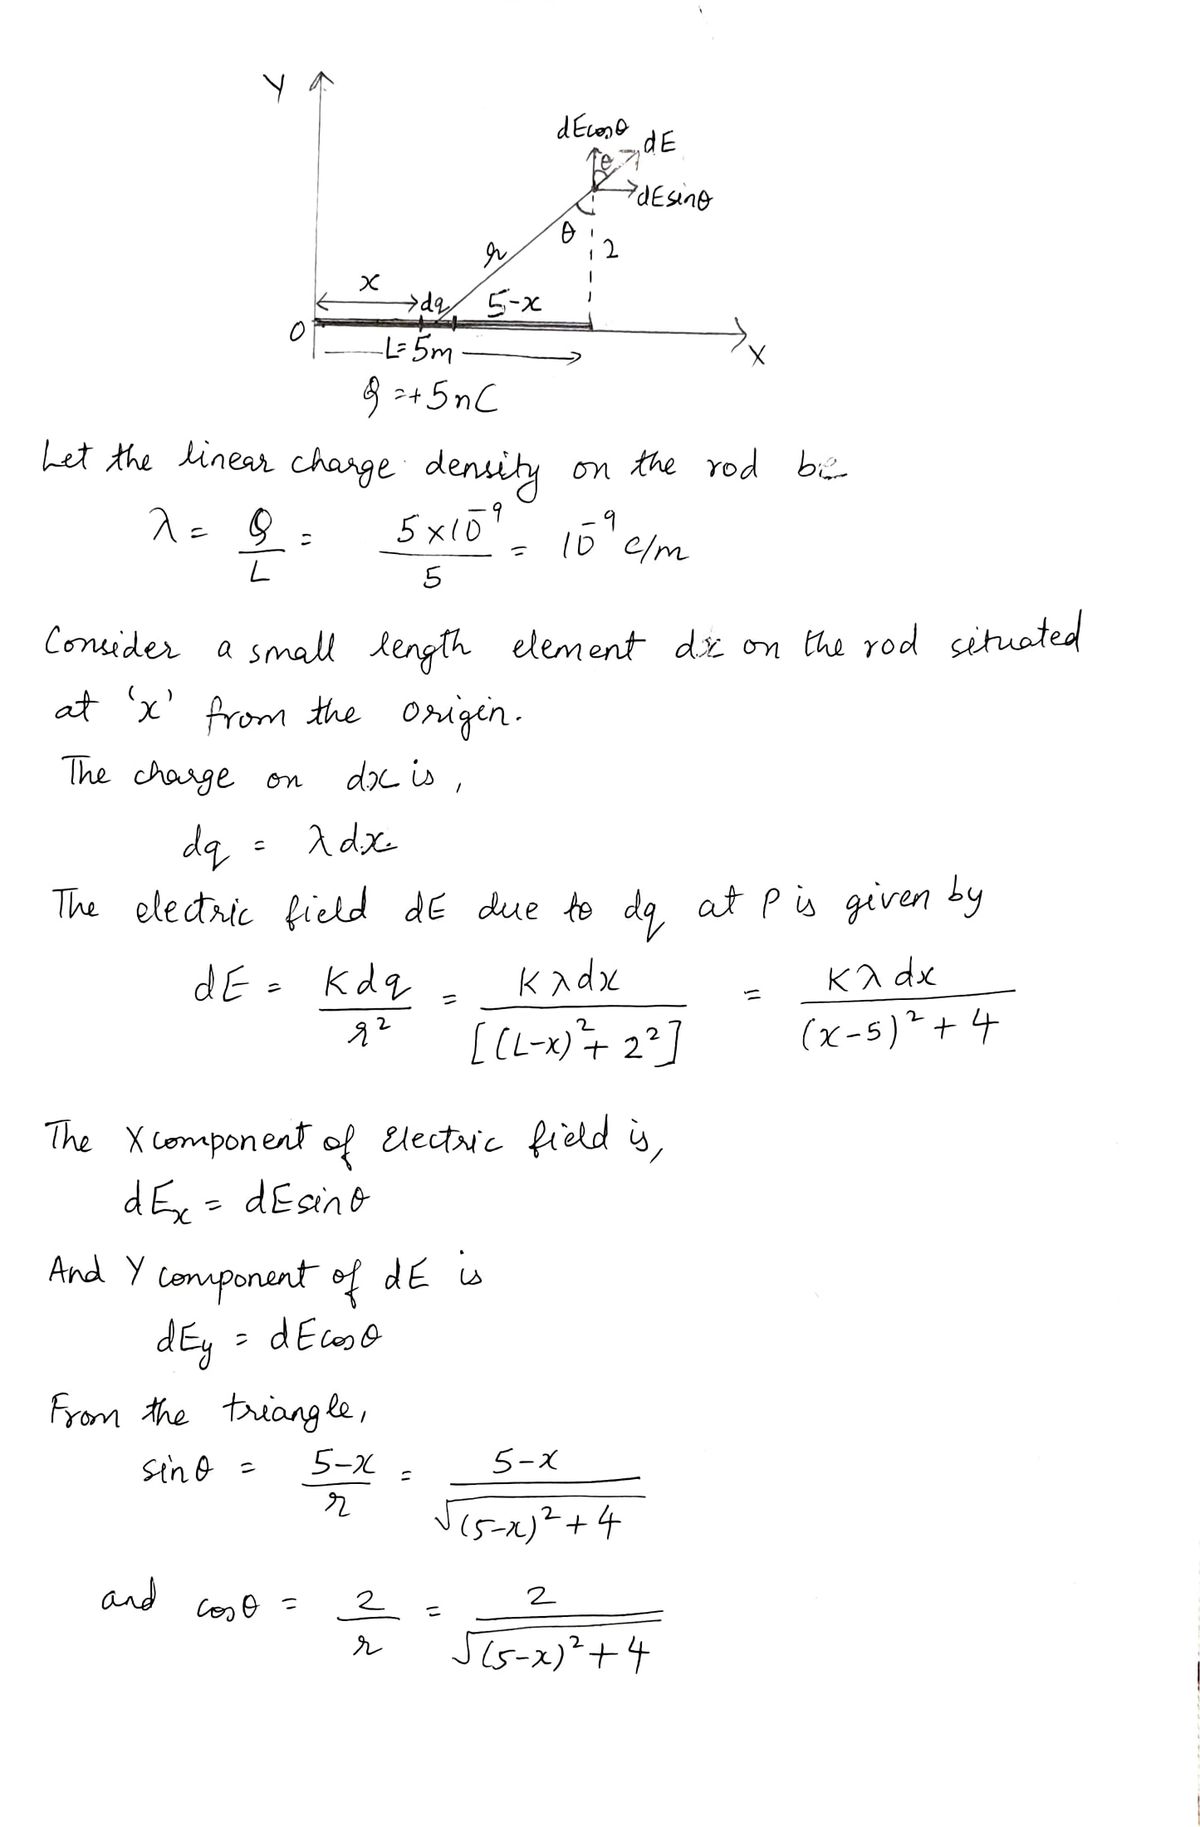 Y
dEcosθ
dE
θ
dEsinθ
θ
2
r
x
dq
5-x
O
L=5m
X
Q =+5nC
Let the linear charge density on the rod be
λ = Q/L = 5×10⁻⁹/5 = 10⁻⁹ c/m
Consider a small length element dx on the rod situated
at 'x' from the origin.
The charge on dx is,
dq = λdx
The electric field dE due to dq at P is given by
dE = Kdq/r² = Kλdx/[(L-x)²+2²] = Kλdx/(x-5)²+4
The X component of Electric field is,
dEx = dEsinθ
And Y component of dE is
dEy = dEcosθ
From the triangle,
sinθ = 5-x/r = 5-x/√(5-x)²+4
and cosθ = 2/r = 2/√(5-x)²+4